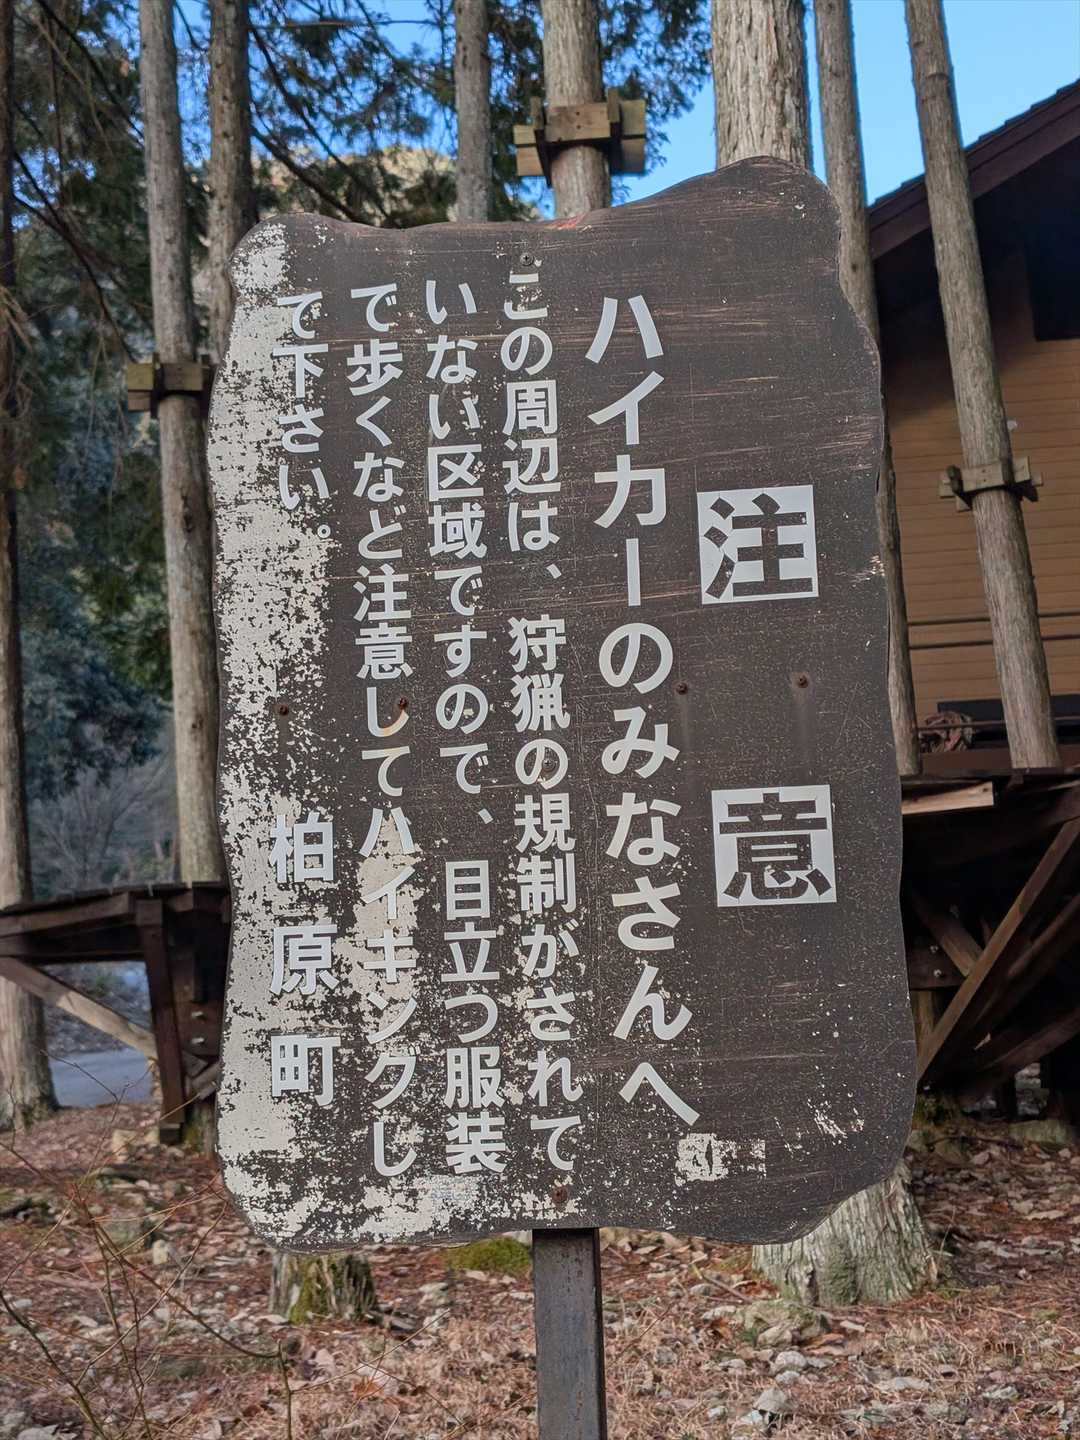 注意
ハイカーのみなさんへ
この周辺は、狩猟の規制がされて
いない区域ですので、目立つ服装
で歩くなど注意してハイキングし
て下さい。
柏原町